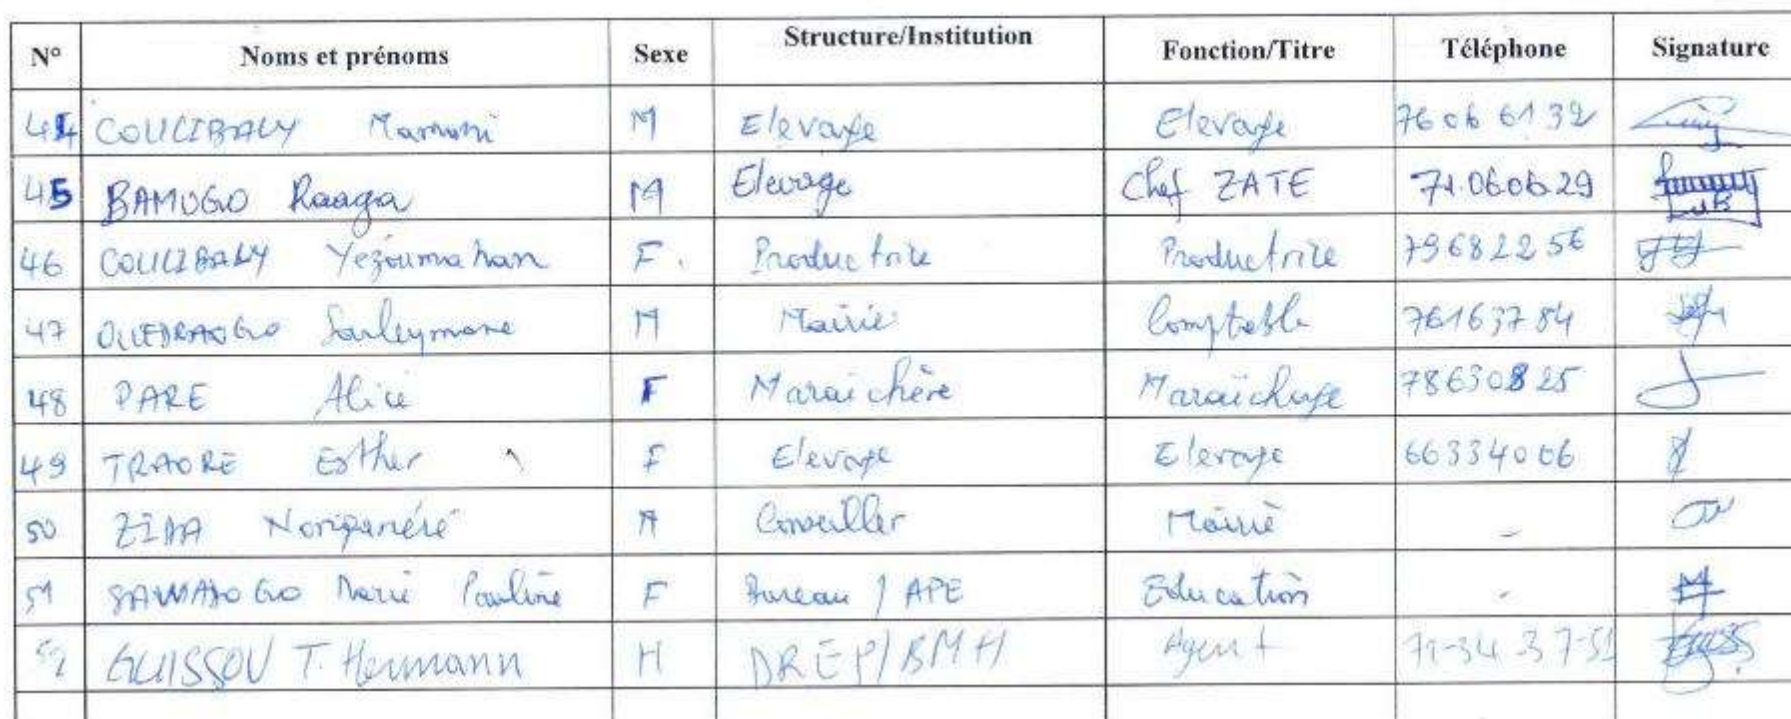 N° Noms et prénoms Sexe Structure/Institution Fonction/Titre Téléphone Signature
44 COULIBALY Mamoni M Elevage Elevage 76 06 61 32
45 BAMOGO Raaga M Elevage Chef ZATE 71.06.06.29
46 COULIBALY Yezoumahan F. Productrice Productrice 79682256
47 OUEDRAOGO Souleymane M Mairie Comptable 76163784
48 PARE Alice F Maraichère Maraîchage 78630825
49 TRAORE Esther F Elevage Elevage 66334006
50 ZIDA M Conseiller Mairie -
51 SAWADOGO Marie Pauline F Bureau / APE Education -
52 GUISSOU T. Hermann H DREP/BMH Agent